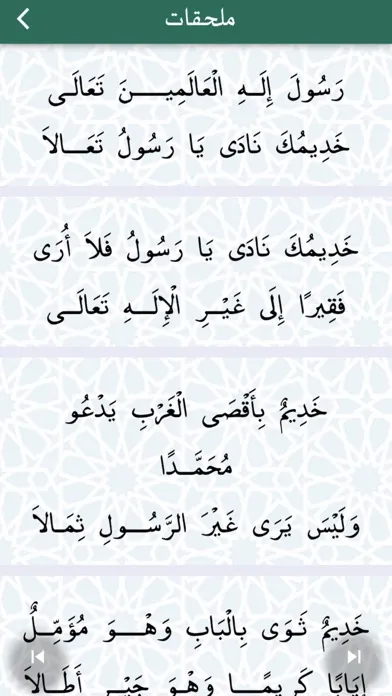 ملحقات
رَسُولَ إِلَـهِ الْعَالَمِيـــنَ تَعَالَـى
خَدِيمُكَ نَادَى يَا رَسُولُ تَعَـــالاَ
خَدِيمُكَ نَادَى يَا رَسُولُ فَلاَ أُرَى
فَقِيرًا إِلَى غَيْـــرِ الْإِلَـــهِ تَعَالَــى
خَدِيمٌ بِأَقْصَى الْغَرْبِ يَدْعُو
مُحَمَّـــدًا
وَلَيْسَ يَرَى غَيْرَ الرَّسُـــولِ ثِمَـالاَ
خَدِيمٌ ثَوَى بِالْبَابِ وَهْـــوَ مُؤَمِّـــلٌ
إِيَابًا كَرِيمًـــا وَهْوَ جَيْـــرِ أَطَـالاَ